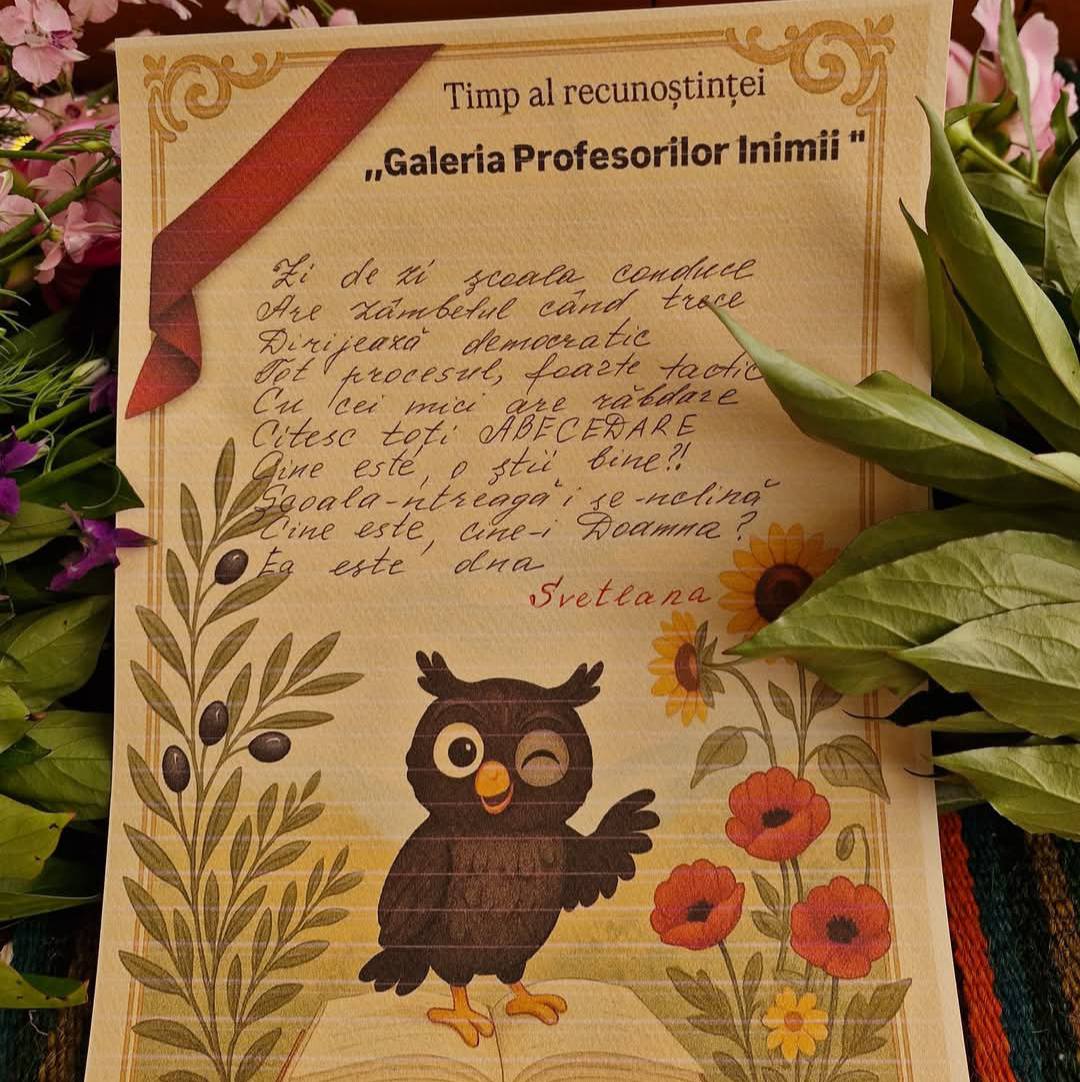 Timp al recunoștinței
„Galeria Profesorilor Inimii "
Zi de zi școala conduce
Are zâmbetul când trece
Dirijează democratic
Tot procesul, foarte tactic
Cu cei mici are răbdare
Citesc toți ABECEDARE
Cine este, o știi bine?!
Școala-ntreagă i se-nclină
Cine este, cine-i Doamna?
Ea este dna
Svetlana